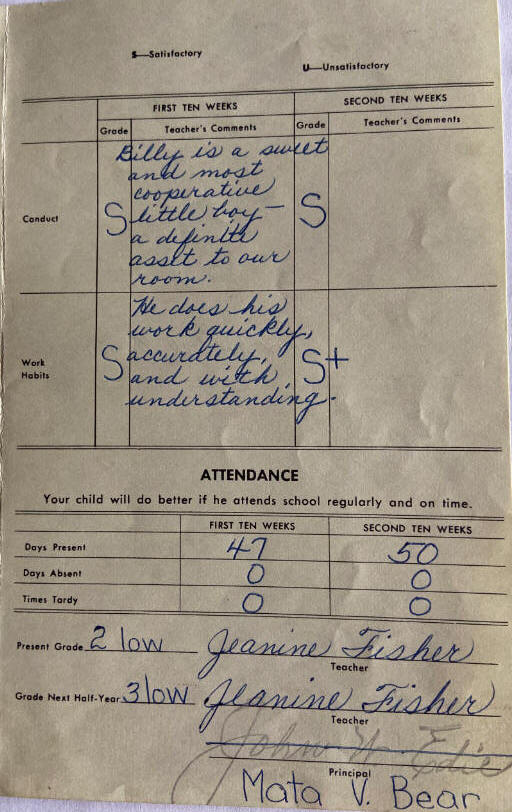 S—Satisfactory
U—Unsatisfactory
FIRST TEN WEEKS SECOND TEN WEEKS
Grade Teacher's Comments Grade Teacher's Comments
Conduct
S
Billy is a sweet
and most
cooperative
little boy—
a definite
asset to our
room.
S
Work
Habits
S
He does his
work quickly,
accurately,
and with
understanding.
S+
ATTENDANCE
Your child will do better if he attends school regularly and on time.
FIRST TEN WEEKS SECOND TEN WEEKS
Days Present 47 50
Days Absent 0 0
Times Tardy 0 0
Present Grade 2 low Jeanine Fisher
Teacher
Grade Next Half-Year 3 low Jeanine Fisher
Teacher
John H Edie
Principal
Mata V. Bear